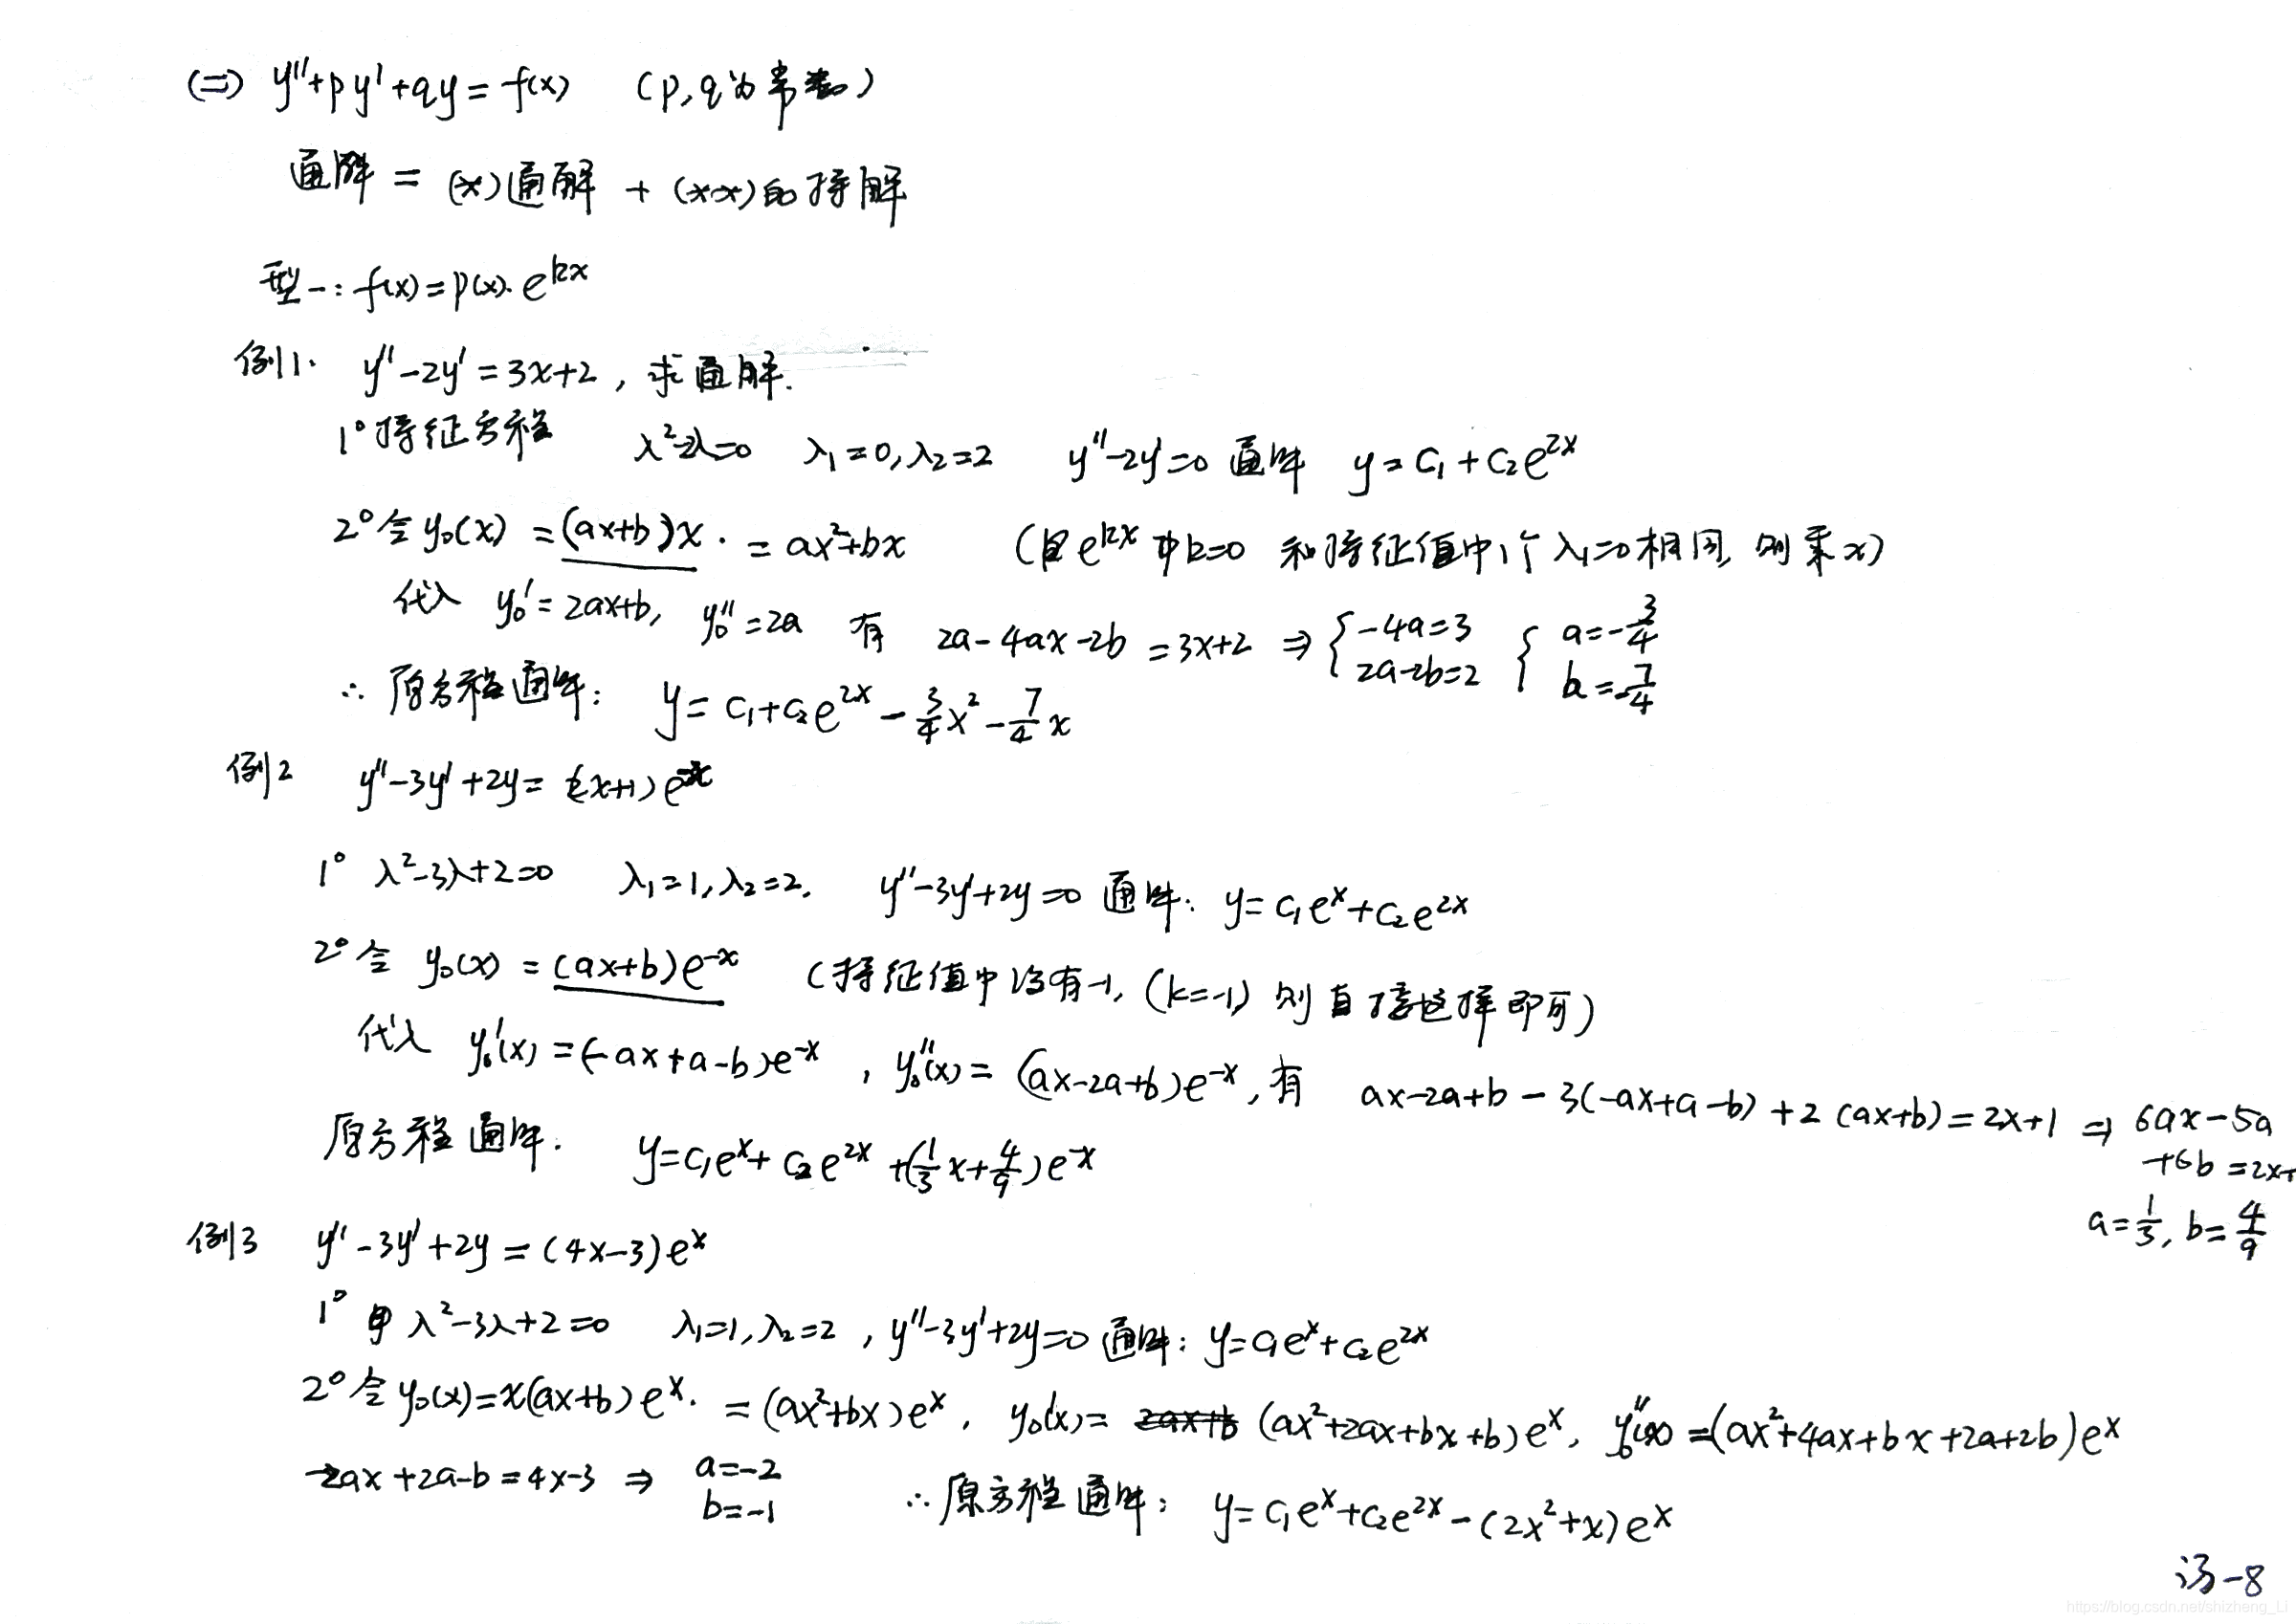 (二) y''+py'+qy=f(x) (p,q为常数)
通解 = (*)通解 + (**)的特解
型一: f(x)=p(x)·e^{kx}
例1. y''-2y'=3x+2, 求通解.
1° 特征方程 λ²-2λ=0 λ₁=0, λ₂=2 y''-2y'=0 通解 y=C₁+C₂e^{2x}
2° 令 y₀(x)=(ax+b)x·=ax²+bx (因e^{kx}中k=0 和特征值中1个λ₁=0相同, 则乘x)
代入 y₀'=2ax+b, y₀''=2a 有 2a-4ax-2b=3x+2 ⇒ {-4a=3 2a-2b=2 {a=-3/4 b=-7/4
∴ 原方程通解: y=C₁+C₂e^{2x}-3/4x²-7/4x
例2 y''-3y'+2y=(2x+1)e^{-x}
1° λ²-3λ+2=0 λ₁=1, λ₂=2. y''-3y'+2y=0 通解: y=C₁e^x+C₂e^{2x}
2° 令 y₀(x)=(ax+b)e^{-x} (特征值中没有-1, (k=-1) 则直接这样即可)
代入 y₀'(x)=(-ax+a-b)e^{-x}, y₀''(x)=(ax-2a+b)e^{-x}, 有 ax-2a+b-3(-ax+a-b)+2(ax+b)=2x+1 ⇒ 6ax-5a
+6b=2x+
原方程通解. y=C₁e^x+C₂e^{2x}+(1/3x+4/9)e^{-x}
a=1/3, b=4/9
例3 y''-3y'+2y=(4x-3)e^x
1° 由 λ²-3λ+2=0 λ₁=1, λ₂=2, y''-3y'+2y=0 通解: y=C₁e^x+C₂e^{2x}
2° 令 y₀(x)=x(ax+b)e^x.=(ax²+bx)e^x, y₀'(x)=(ax²+2ax+bx+b)e^x, y₀''(x)=(ax²+4ax+bx+2a+2b)e^x
-2ax+2a-b=4x-3 ⇒ a=-2 b=-1 ∴ 原方程通解: y=C₁e^x+C₂e^{2x}-(2x²+x)e^x
汤-8
https://blog.csdn.net/shizheng_Li